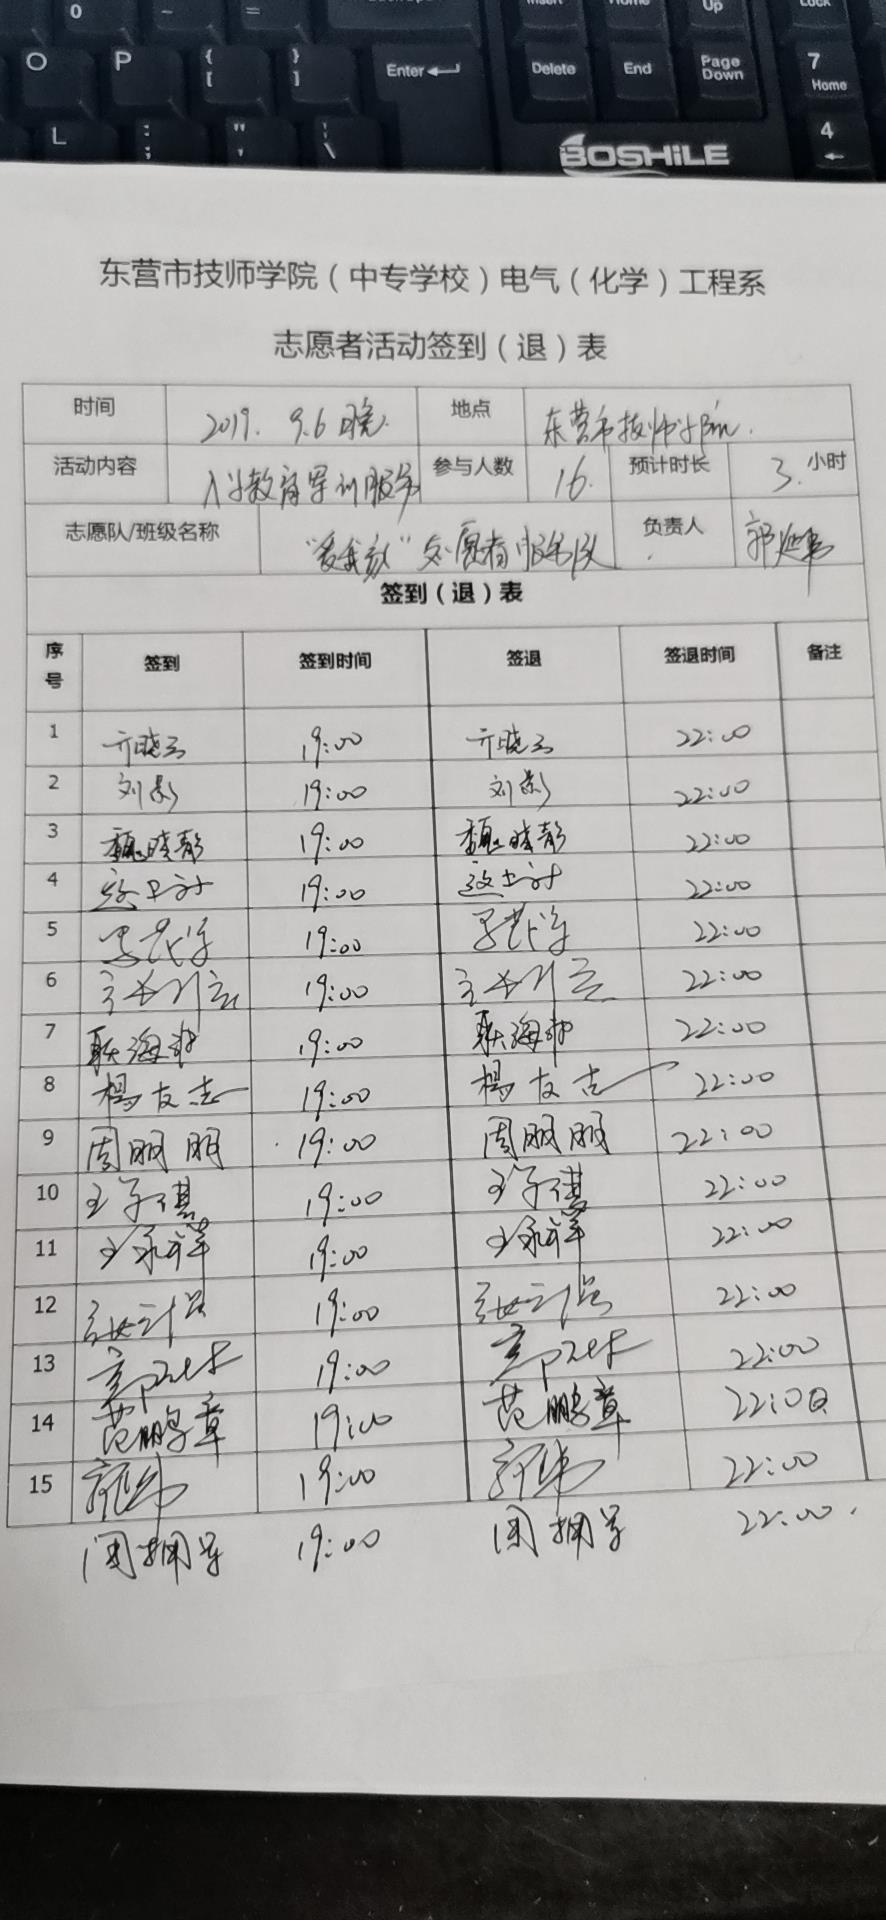 0 - = Backspace Insert Home Up Lock
O P { [ } ] Enter Delete End Page Down 7 Home
L : ; " ' | \ BOSHILE 4
东营市技师学院（中专学校）电气（化学）工程系
志愿者活动签到（退）表
时间 2019. 9.6 晚. 地点 东营市技师学院.
活动内容 入学教育军训服务 参与人数 16. 预计时长 3. 小时
志愿队/班级名称 志愿者服务队 负责人
签到（退）表
序号 签到 签到时间 签退 签退时间 备注
1 齐晓云 19:00 齐晓云 22:00
2 刘彭 19:00 刘彭 22:00
3 魏晓静 19:00 魏晓静 22:00
4 19:00 22:00
5 19:00 22:00
6 19:00 22:00
7 19:00 22:00
8 杨友志 19:00 杨友志 22:00
9 周朋朋 19:00 周朋朋 22:00
10 王子祺 19:00 王子祺 22:00
11 王永祥 19:00 王永祥 22:00
12 19:00 22:00
13 19:00 22:00
14 范鹏章 19:00 范鹏章 22:00
15 19:00 22:00
19:00 22:00.